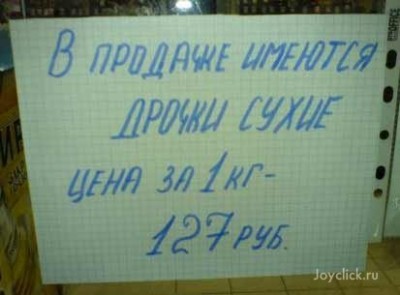 В ПРОДАЧЖЕ ИМЕЮТСЯ
ДРОЧКИ СУХИЕ
ЦЕНА ЗА 1 КГ-
127 РУБ.
Joyclick.ru